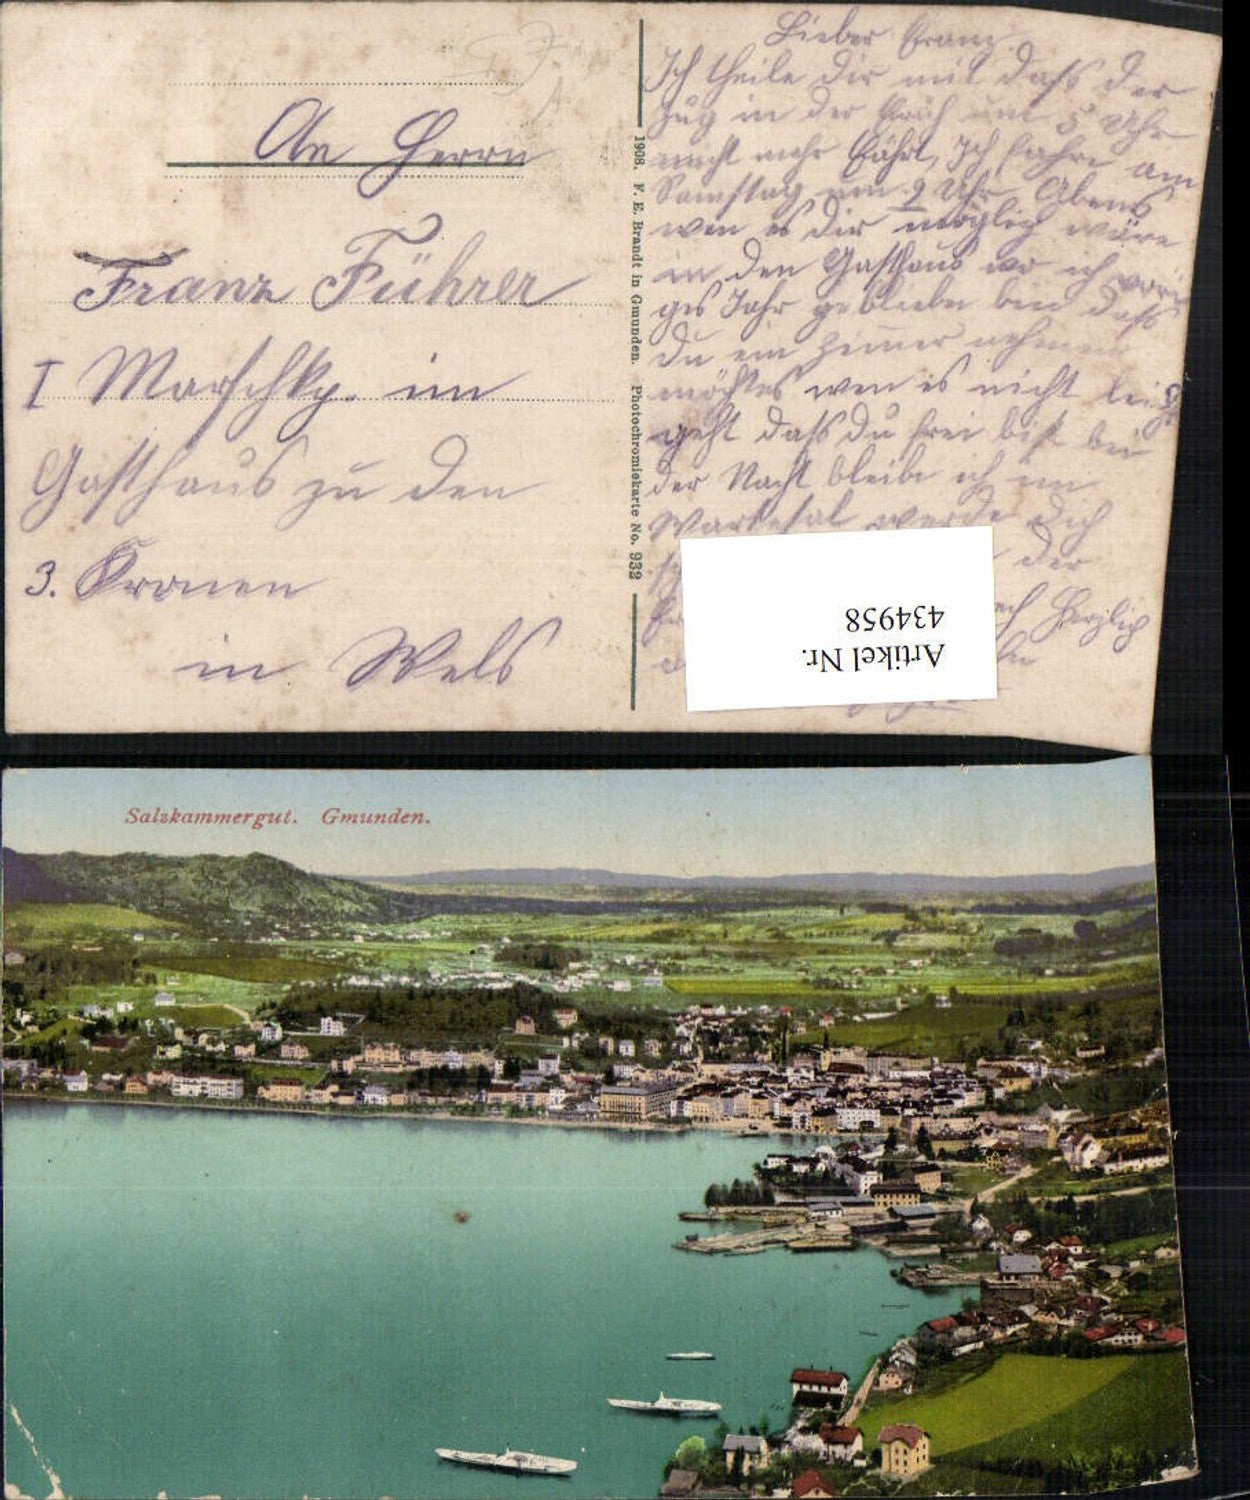 An Herrn
Franz Führer
I Marschkp. im
Gasthaus zu den
3. Kronen
in Wels
1908. F. E. Brandt in Gmunden. Photochromiekarte No. 932
Lieber Franz
Ich theile dir mit dass der
Zug in der Früh um 5 Uhr
nicht mehr fährt, Ich fahre am
Samstag um 9 Uhr Abens
wen es dir möglich wäre
in den Gasthaus wo ich vori
ges Jahr geblieben bin dass
du ein Zimmer nehmen
möchtes wen es nicht leicht
geht dass du frei bist bei
der Nacht bleibe ich im
Wartesal werde dich
der
Herzlich
Artikel Nr.
434958
Salzkammergut. Gmunden.